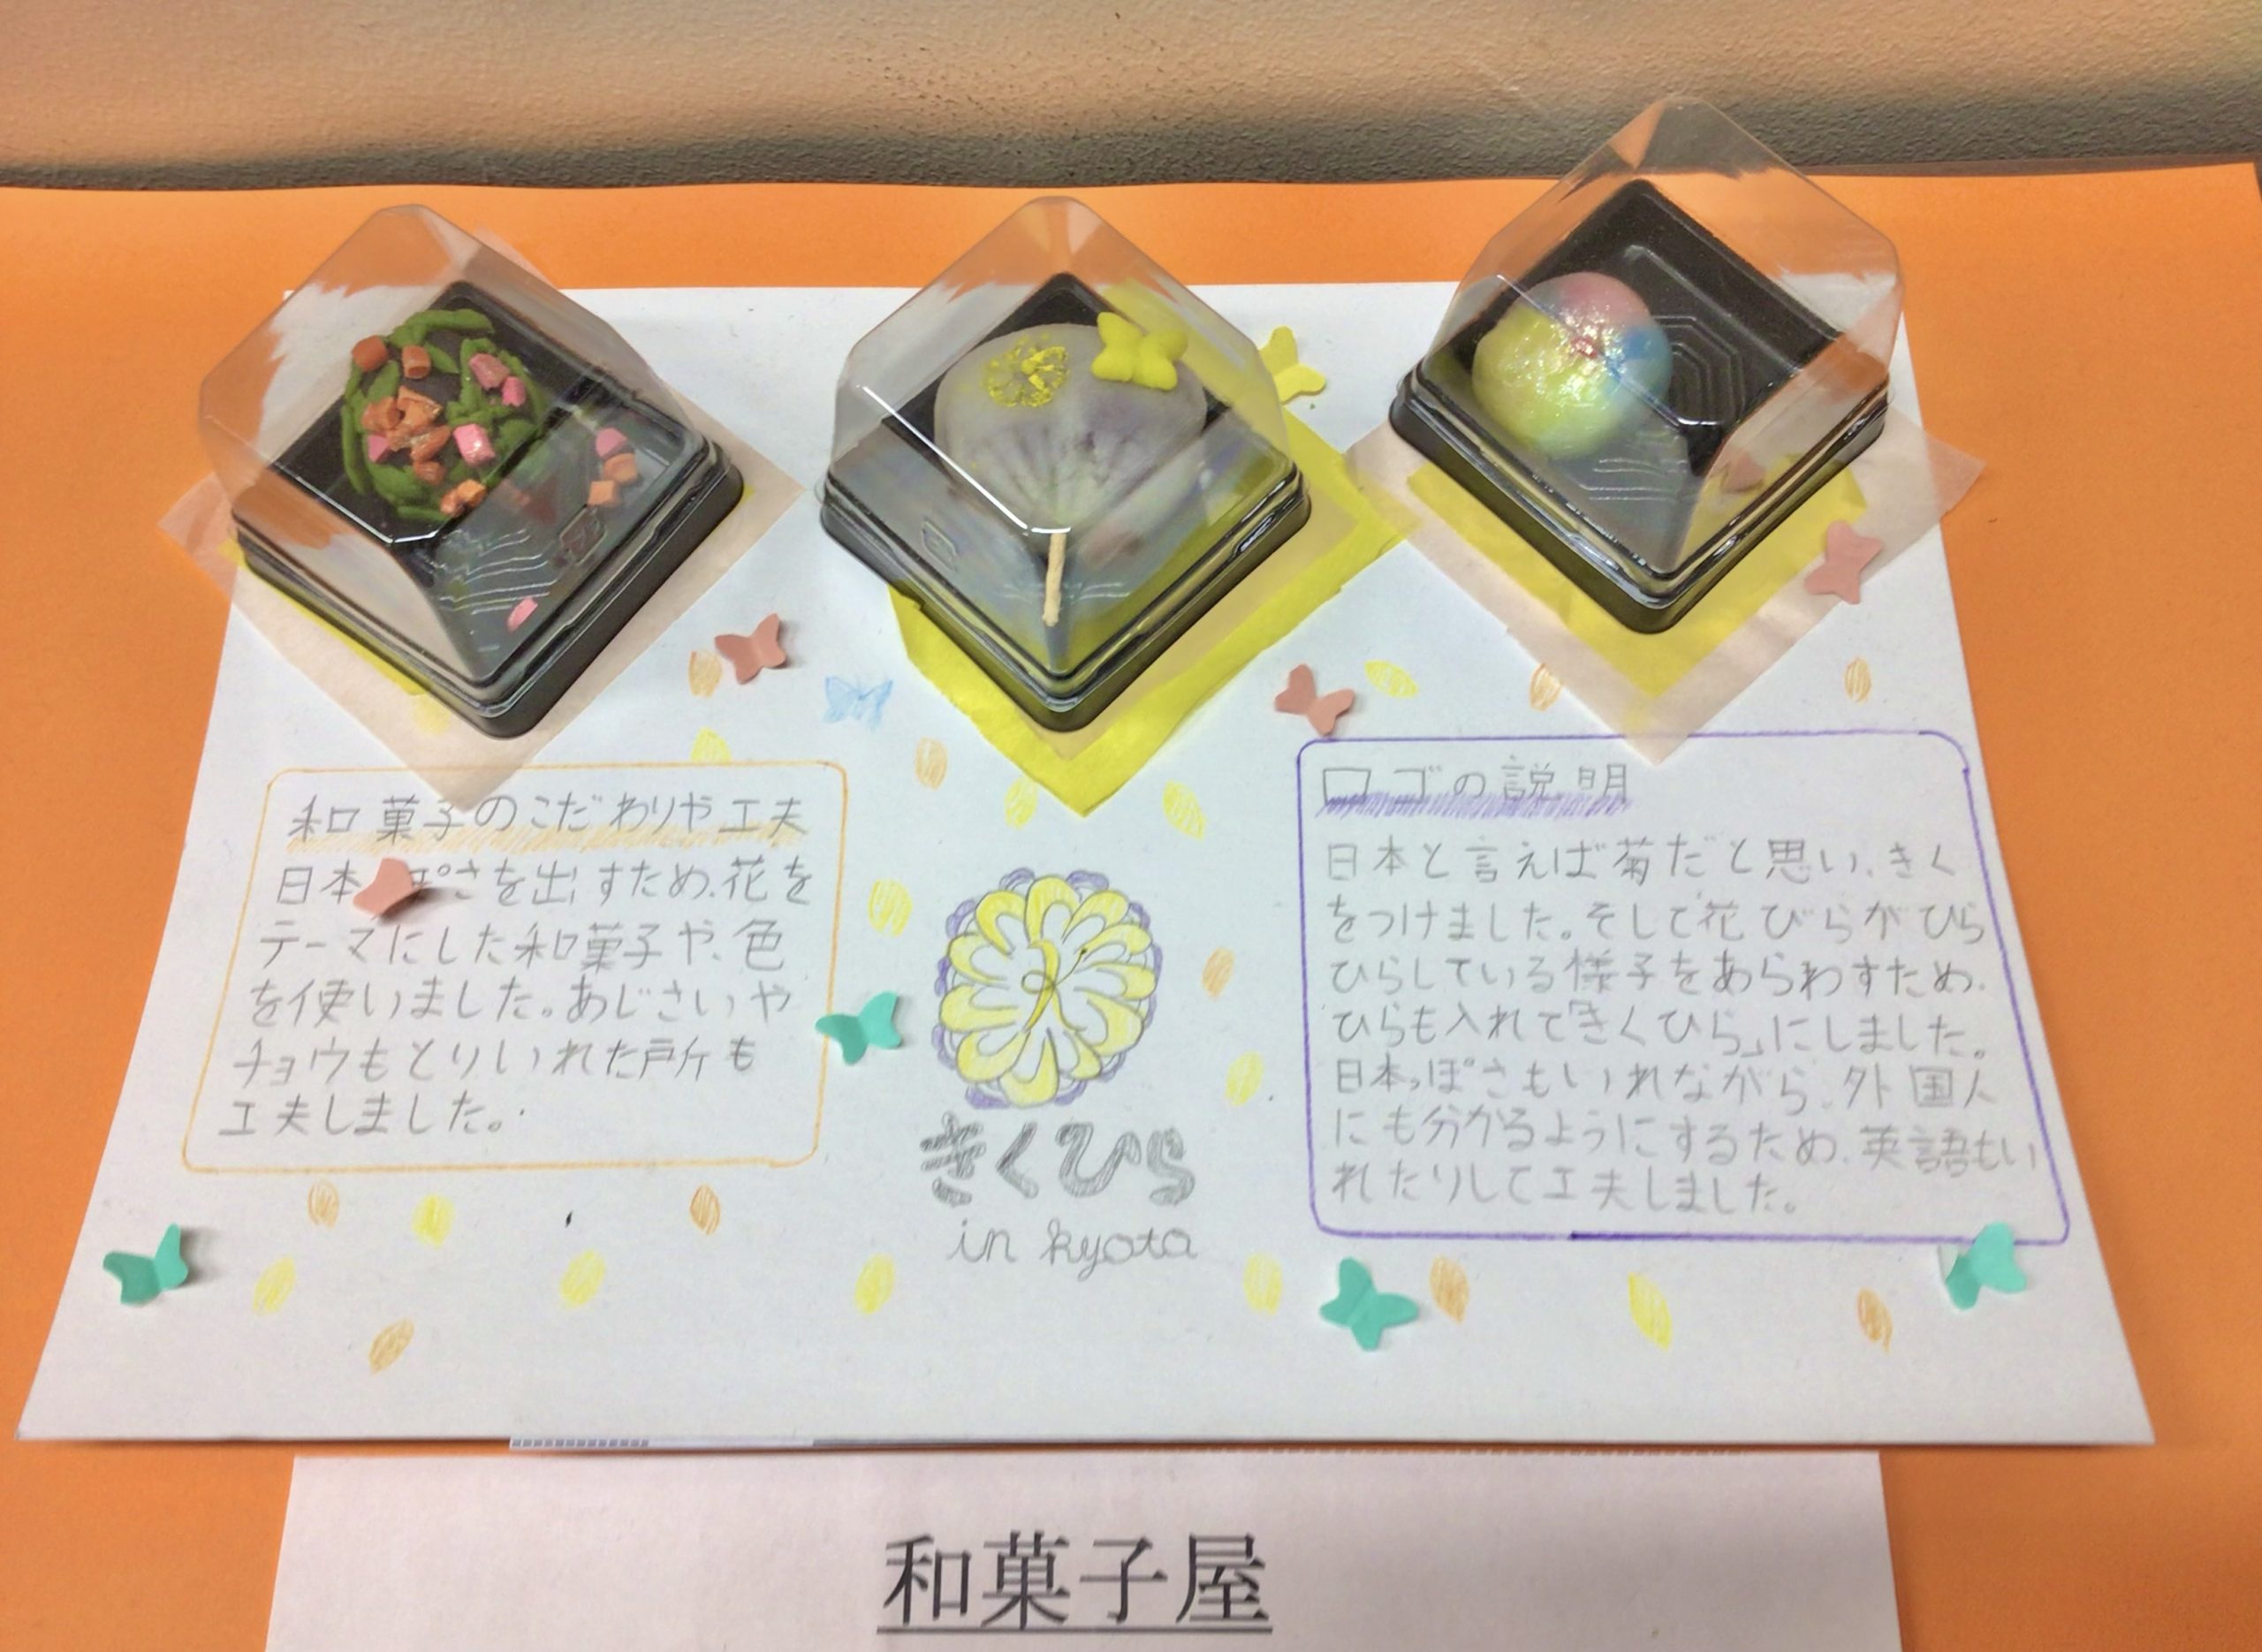 和菓子のこだわりや工夫
日本 ぽさを出すため、花を
テーマにした和菓子や、色
を使いました。あじさいや
チョウもとりいれた所も
工夫しました。
きくひら
in kyoto
ロゴの説明
日本と言えば菊だと思い、きく
をつけました。そして花びらがひら
ひらしている様子をあらわすため、
ひらも入れて「きくひら」にしました。
日本っぽさもいれながら、外国人
にも分かるようにするため、英語もい
れたりして工夫しました。
和菓子屋